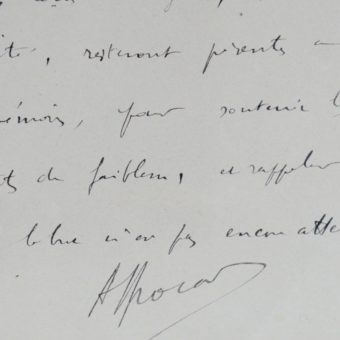 ité, resteront présents
mémoire, pour soutenir l
ts de faiblesse, et rappeler
le but n'est pas encore atte